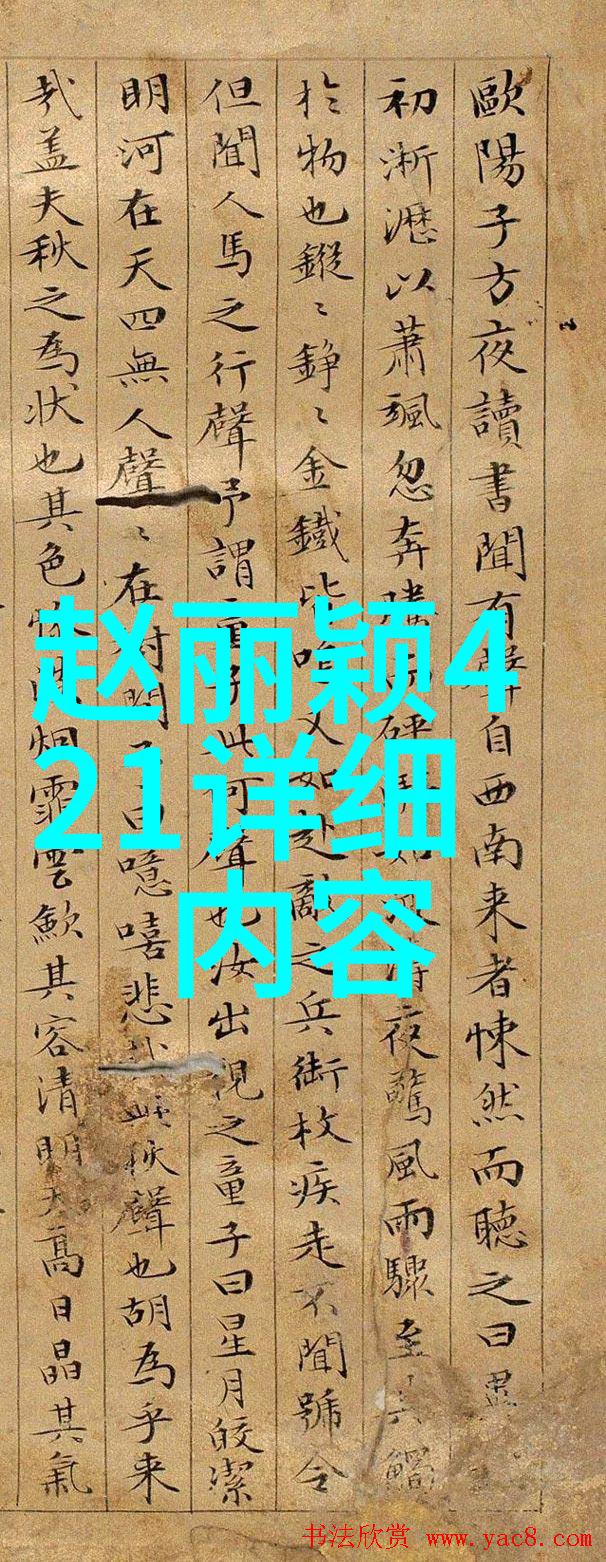 歐陽子方夜讀書聞有聲自西南来者悚然而聽之曰異
初淅瀝以蕭颯忽奔騰而砰湃如波濤夜驚風雨驟至其觸
扵物也鏦〻錚〻金鐵皆鳴又如赴敵之兵銜枚疾走不聞號令
但聞人馬之行聲予謂童子此何聲也汝出視之童子曰星月皎潔
明河在天四無人聲〻在樹間予曰噫嘻悲秋聲也胡為乎来
㢤盖夫秋之為状也其色慘烟霏雲歛其容清明天髙日晶其氣
赵丽颖4
21详细
内容
书法欣赏 www.yac8.com